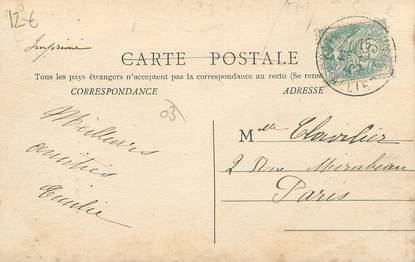 12-€
Imprimé
CARTE POSTALE
Tous les pays étrangers n'acceptent pas la correspondance au recto (Se rense
CORRESPONDANCE
ADRESSE
03
Meilleurs
amitiés
Emilie
Mlle Clavelier
2 Rue Mirabeau
Paris